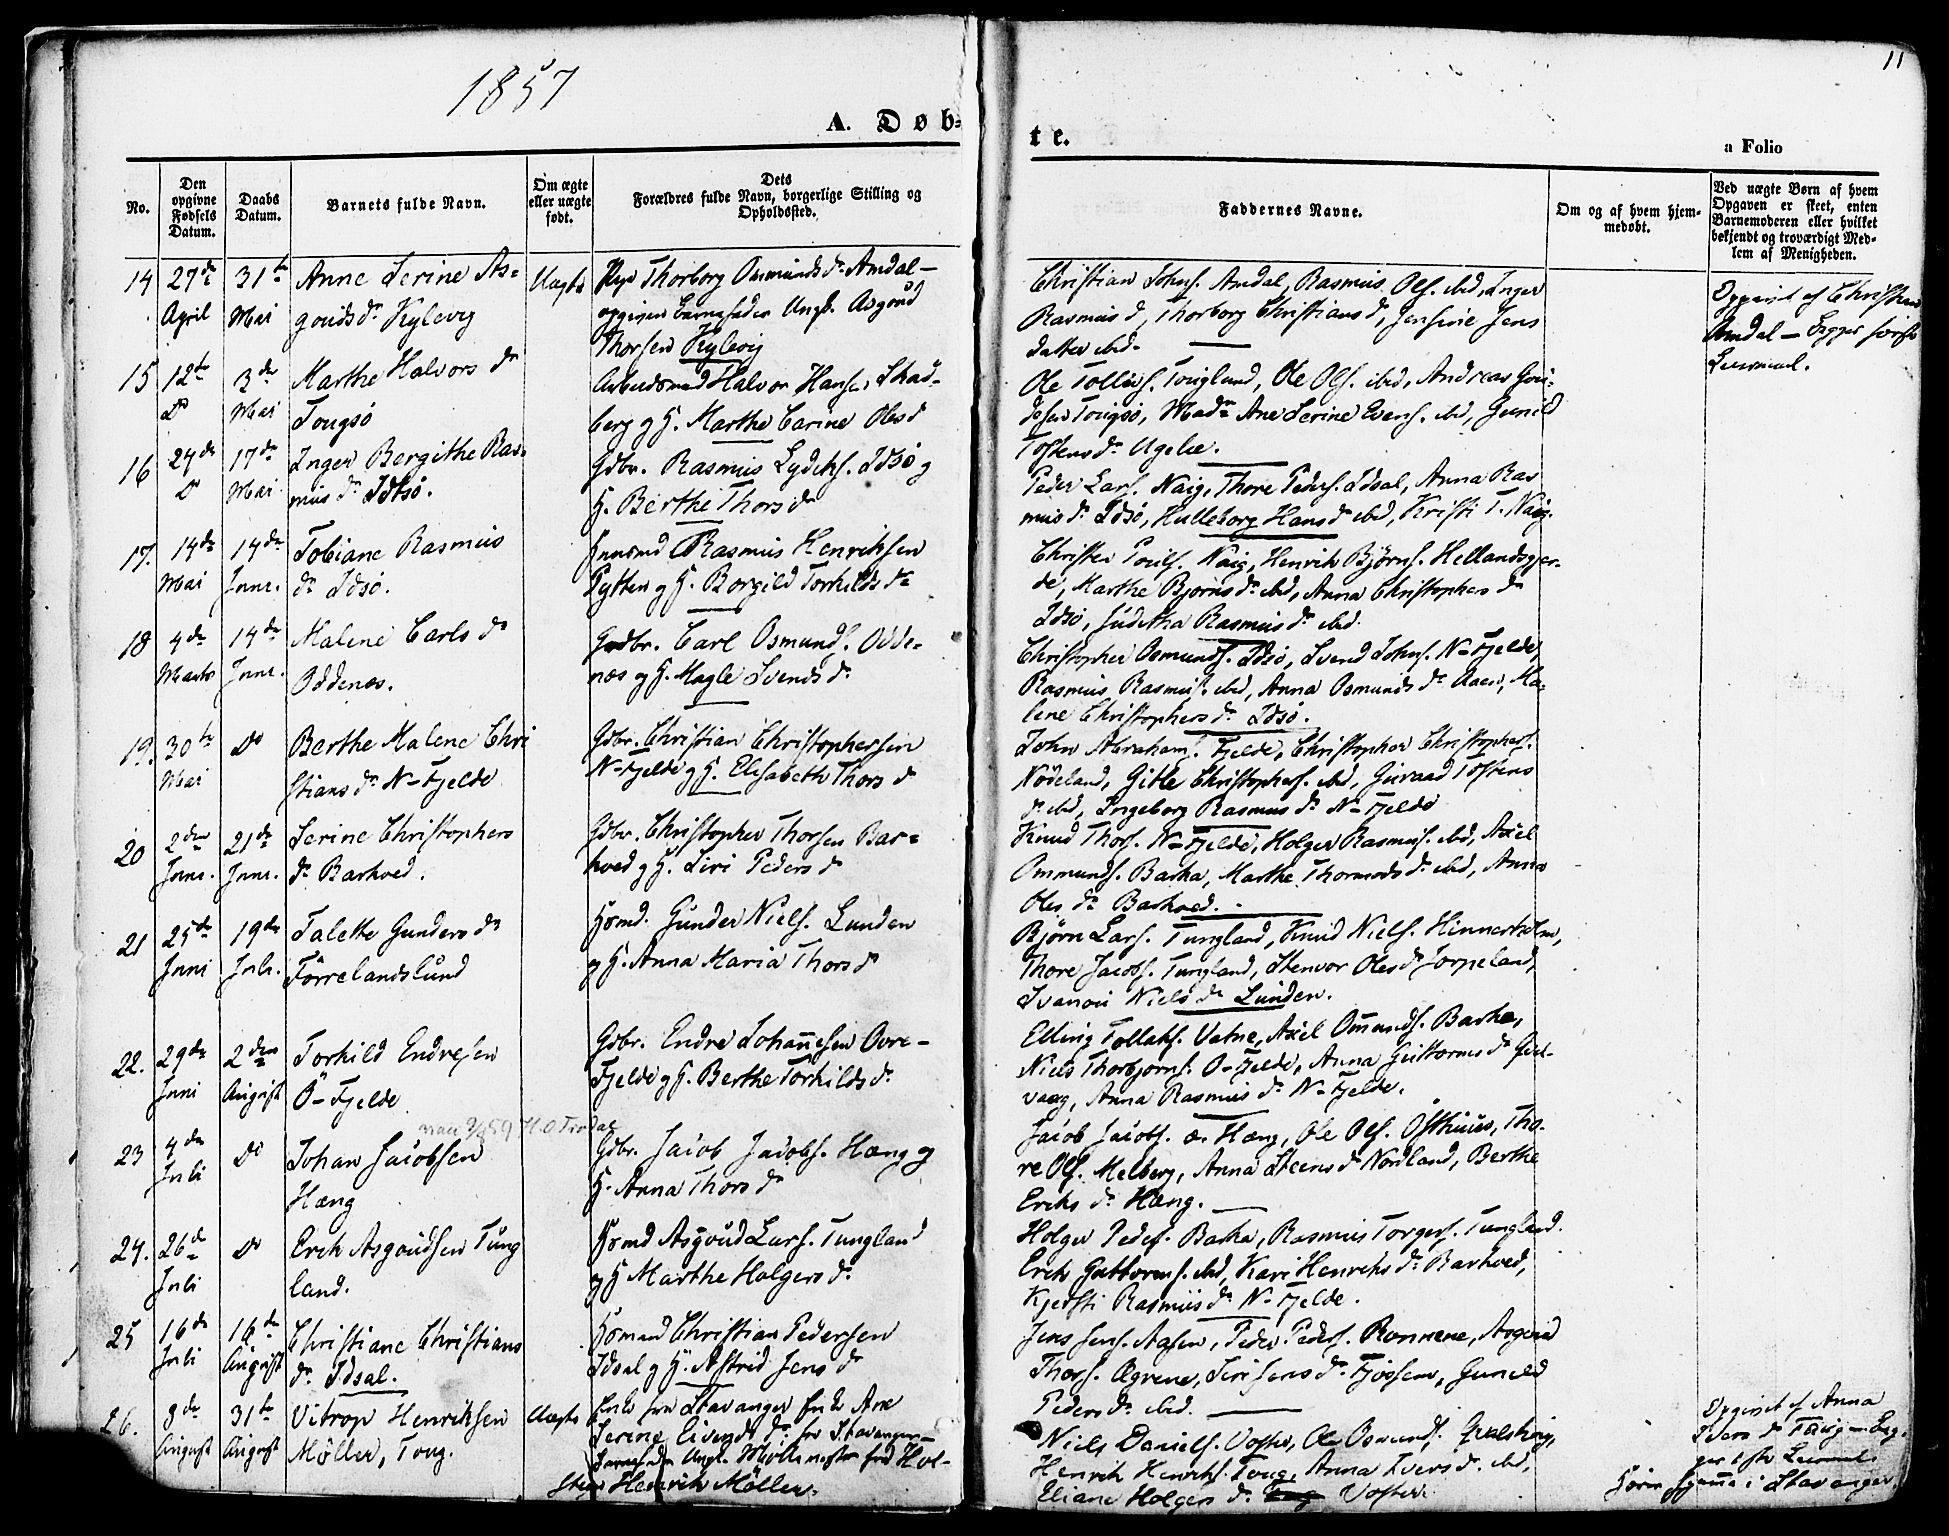 11
1857
A. Døb=
te.
a Folio
No.
Den opgivne Fødsels Datum.
Daabs Datum.
Barnets fulde Navn.
Om ægte eller uægte født.
Dets
Forældres fulde Navn, borgerlige Stilling og Opholdssted.
Faddernes Navne.
Om og af hvem hjem-
medøbt.
Ved uægte Børn af hvem
Opgaven er skeet, enten
Barnemoderen eller hvilket
bekjendt og troværdigt Med-
lem af Menigheden.
14 27de April 31te Mai
Anne Serine As=
gouds Dr Kylevig
Uægte
Pige Thorborg Osmunds Dr Amdal –
opgiven Barnefader Ungk. Asgoud
Thorsen Kylevig
Christian Johns. Amdal, Rasmus Ols. ibid, Inger
Rasmus d, Thorborg Christians d, Jensine Jens
datter ibid.
Opgivet af Christian
Amdal –
15 12te Do 3de Mai
Marthe Halvors dr
Tougsø
Arbeidsmand Halvor Hansen Skad-
berg og H. Marthe Carine Oles d
Ole Tollivs. Tougland, Ole Ols. ibid, Andreas Gou-
desen Tougsø, Made Ane Serine Evens. ibid, Gunild
Tostens dr Ugelie.
16 24de Do 17de Mai
Inger Bergithe Ras-
mus dr Idsø.
Gdbr. Rasmus Lydiks. Idsø og
H. Berthe Thors dr
Peder Lars. Naig, Thore Peders. Idsal, Anna Ras
mus dr Idsø, Hulleborg Hans d ibid, Kristi T. Naig.
17. 14de Mai 14de Juni.
Tobiane Rasmus
dr Idsø.
Huusmd Rasmus Henriksen
Pytten og H. Borgild Torkilds dr
Christen Pouls. Naig, Henrik Bjørns. Hellandsgjer-
de, Marthe Bjørns dr ibid, Anna Christophers dr
Idsø, Juditha Rasmus dr ibid.
18 4de Marts 14de Juni.
Malene Carls dr
Oddenæs.
Gaardbr. Carl Osmunds. Odde-
næs og H. Magle Svends dr
Christopher Osmunds. Idsø, Svend Johns. N-Fjelde,
Rasmus Rasmus. ibid, Anna Osmunds dr Aaen, Ma-
lene Christophers dr Idsø.
19. 30te Mai Do
Berthe Malene Chri
stians dr N-Fjelde
Gdbr. Christian Christophersen
N-Fjelde og H. Elisabeth Thors d
John Abrahams. Fjelde, Christopher Christophers.
Nødeland, Gitle Christophers. ibid, Guvaad Tostens
dr ibid, Ingeborg Rasmus dr N-Fjelde
20 2den Juni. 21de Juni.
Serine Christophers
dr Barkved.
Gdbr. Christopher Thorsen Bar=
kved og H. Siri Peders d
Knud Thors. N-Fjelde, Holger Rasmus. ibid, Axel
Ommunds. Barka, Marthe Thormods dr ibid, Anna
Oles dr Barkved.
21 25de Juni 19de Juli.
Talette Gunders dr
Førrelandslund
Husmd. Gunder Niels. Lunden
og H. Anna Maria Thors d
Bjørn Lars. Tungland, Knud Niels. Hinnerholm,
Thore Jacobs. Tungland, Stenvor Oles d Jørpeland,
Svanou Niels dr Lunden.
22. 29de Juni 2den August
Torkild Endresen
Ø-Fjelde
Gdbr. Endre Johannesen Øvre-
Fjelde og H. Berthe Torkilds dr
Elling Tollaks. Vatne, Axel Omunds. Barka,
Niels Thorbjørns. Ø-Fjelde, Anna Guttorms dr
vaag, Anna Rasmus dr N-Fjelde.
23 4de Juli Do
Johan Jacobsen
Hæng
Gdbr. Jacob Jacobs. Hæng og
H. Anna Thors d
Jacob Jacobs. Hæng, Ole Ols. Østhuus, Tho-
re Ols. Melberg, Anna Steens d Nordland, Berthe
Eriks dr Hæng.
24. 26de Juli Do
Erik Asgoudsen Tung
land.
Husmd Asgoud Lars. Tungland
og H Marthe Holgers dr
Holger Peders. Barka, Rasmus Torgers. Tungland.
Erik Guttorms. ibid, Kari Henriks dr Barkved,
Kjersti Rasmus dr N-Fjelde.
25 16de Juli 16de August
Christiane Christians
dr Idsal.
Husmand Christian Pedersen
Idsal og H. Astrid Jens dr
Jens Jens. Aasen, Peder Peders. Ronnene,
Thors. Øgrene, Siri Jens dr Fjøssene, Gunild
Peders dr ibid.
26. 8de August 31te August
Vitrop Henriksen
Møller, Toug.
Uægte
Enke fra Stavanger Enke Ane
Serine Eivends dr fra Stavanger –
Barnefader Ungk. Møllemester fra Hol-
sten Henrik Møller.
Niels Daniels. Voster, Ole Osmunds.
Henrik Henriks. Toug, Anna Ivers dr ibid,
Eliane Holgers dr Voster.
Opgivet af Anna
Ivers d Toug –
hjemme i Stavanger.